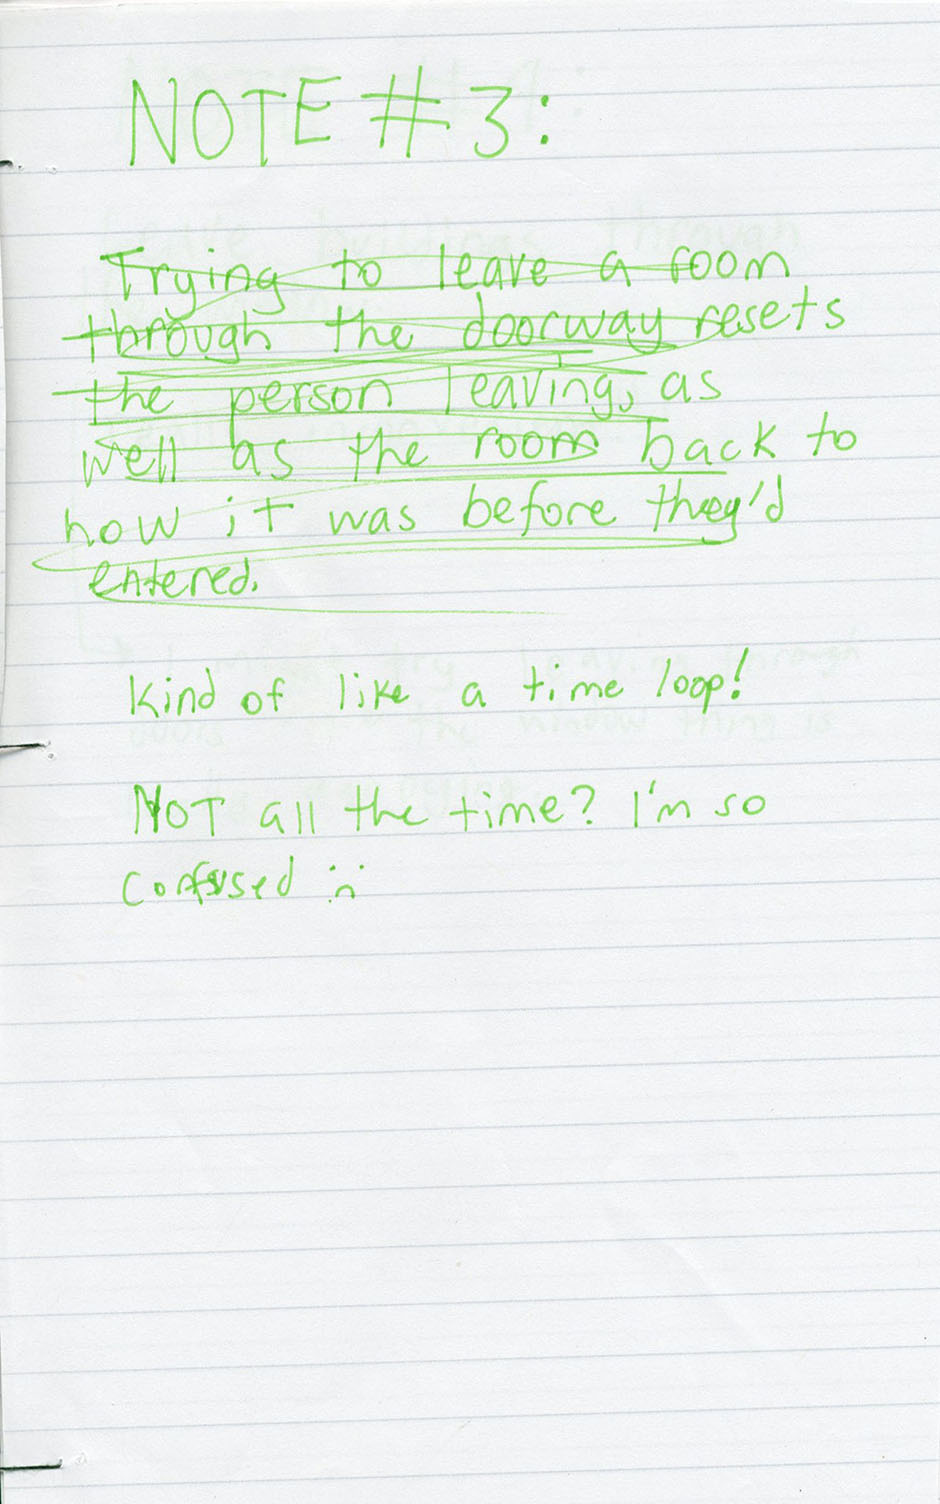 NOTE #3:
Trying to leave a room
through the doorway resets
the person leaving, as
well as the room back to
how it was before they'd
entered.
Kind of like a time loop!
NOT all the time? I'm so
confused :(